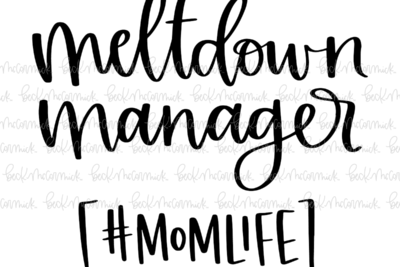 meltdown
manager
[#MOMLIFE]